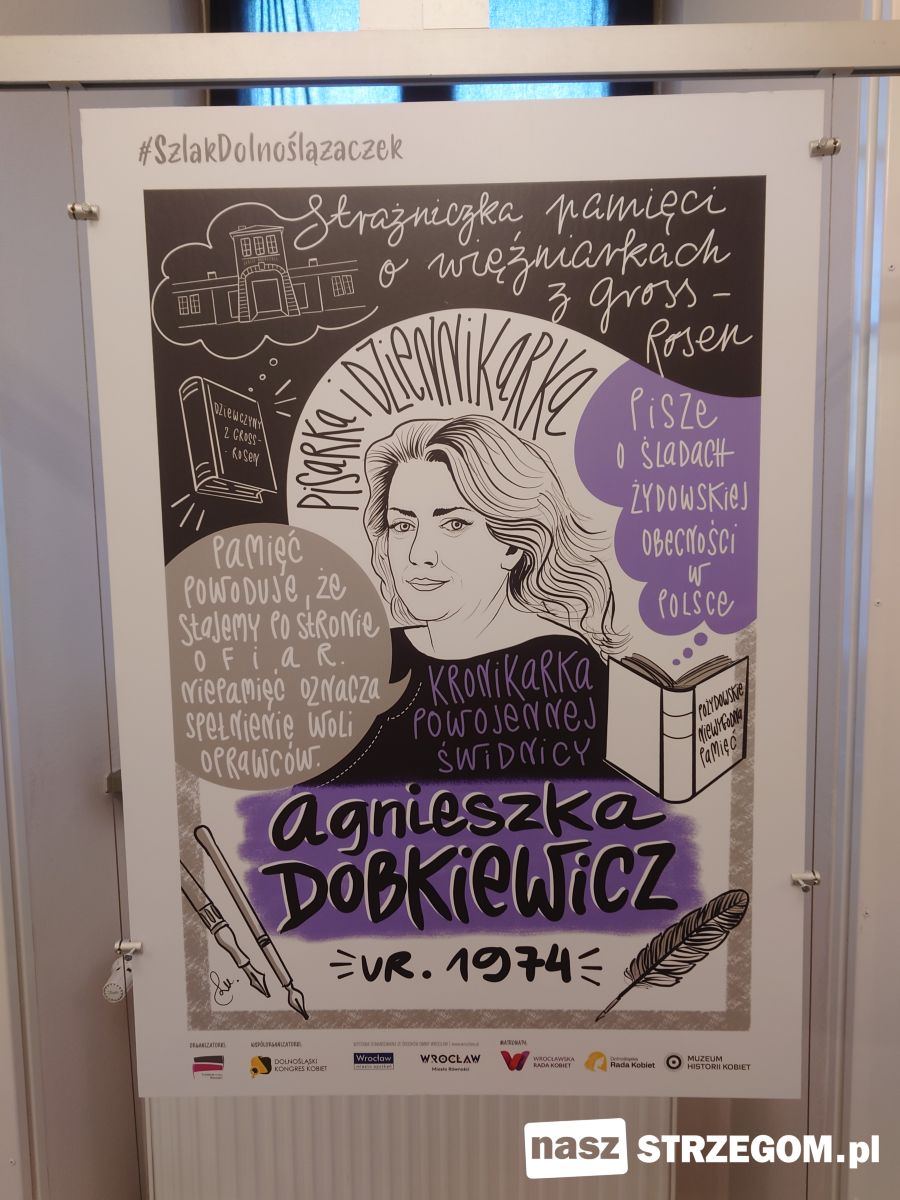 #SzlakDolnoślązaczek
Strażniczka pamięci
o więźniarkach
z Gross-
Rosen
Pisarka i dziennikarka
DZIEWCZYNY
Z GROSS-
-ROSEN
Pisze
o śladach
żydowskiej
obecności
w
Polsce
Pamięć
powoduje, że
stajemy po stronie
ofiar.
Niepamięć oznacza
spełnienie woli
oprawców.
Kronikarka
powojennej
Świdnicy
POŻYDOWSKIE
NIEWYGODNA
PAMIĘĆ
Agnieszka
Dobkiewicz
ur. 1974
ORGANIZATORKI:
WSPÓŁORGANIZATORKI:
MATRONATY:
DOLNOŚLĄSKI
KONGRES KOBIET
Wrocław
miasto spotkań
WROCŁAW
Miasto Równości
WROCŁAWSKA
RADA KOBIET
Dolnośląska
Rada Kobiet
MUZEUM
HISTORII KOBIET
nasz STRZEGOM.pl